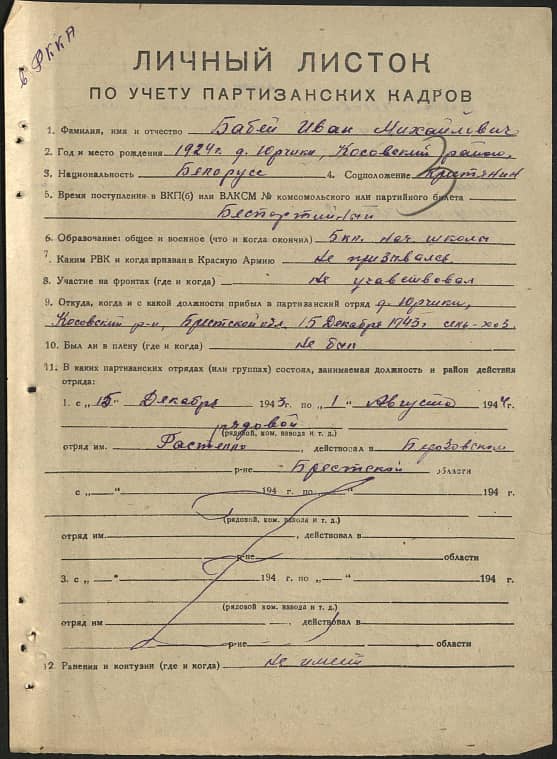 в РККА
ЛИЧНЫЙ ЛИСТОК
ПО УЧЕТУ ПАРТИЗАНСКИХ КАДРОВ
1. Фамилия, имя и отчество Бабей Иван Михайлович
2. Год и место рождения 1924 г. д. Юрчики, Косовский район,
3. Национальность Белорусс 4. Соцположение Кристянин
5. Время поступления в ВКП(б) или ВЛКСМ № комсомольского или партийного билета
Беспартийный
6. Образование: общее и военное (что и когда окончил) 5 кл. нач. школы
7. Каким РВК и когда призван в Красную Армию Не призывалсь
8. Участие на фронтах (где и когда) Не учавствовал
9. Откуда, когда и с какой должности прибыл в партизанский отряд д. Юрчики,
Косовский р-н, Брестской обл. 15 Декабря 1943 г. сель-хоз.
10. Был ли в плену (где и когда) Не был
11. В каких партизанских отрядах (или группах) состоял, занимаемая должность и район действия
отряда:
1. с „15" Декабря 1943 г. по „1" Августа 1944 г.
рядовой
(рядовой, ком. взвода и т. д.)
отряд им. , действовал в Березовском
р-не Брестской области
с „ " 194 г. по „ " 194 г.
(рядовой, ком. взвода и т. д.)
отряд им. , действовал в
р-не области
3. с „ " 194 г. по „ " 194 г.
(рядовой, ком. взвода и т. д.)
отряд им , действовал в
р-не области
12. Ранения и контузии (где и когда) Не имеет